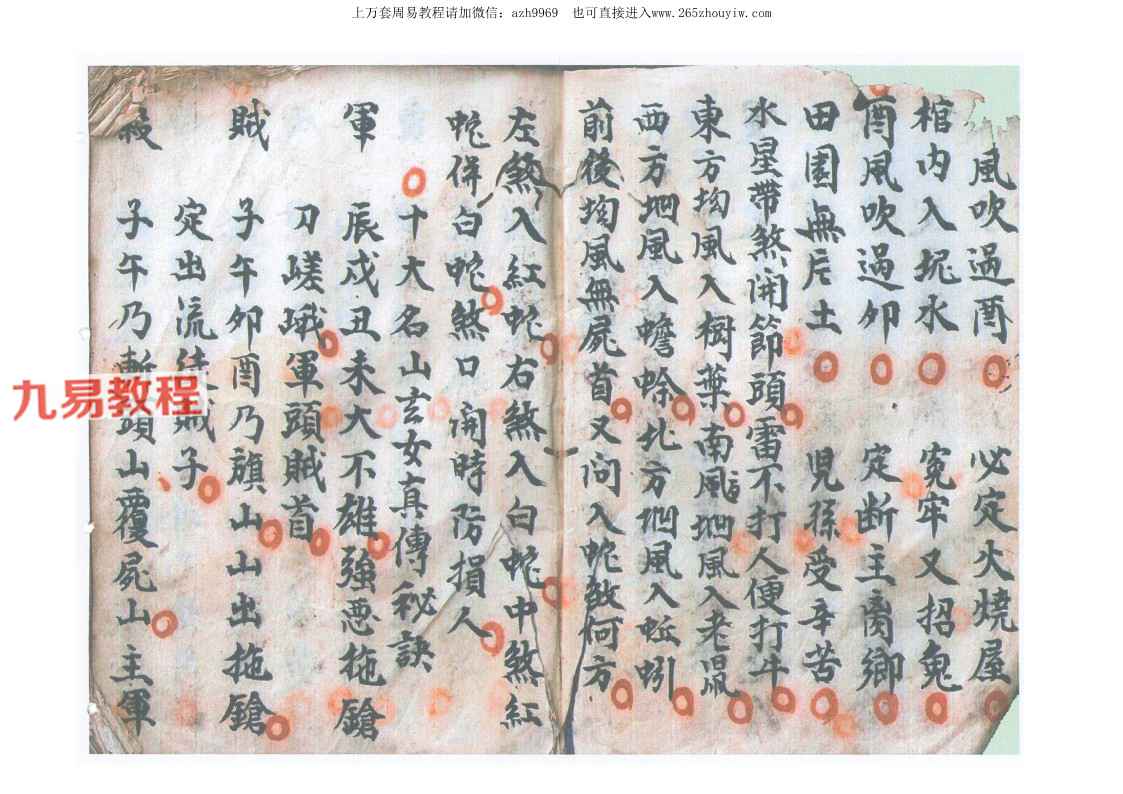 上万套周易教程请加微信：azh9969　也可直接进入www.265zhouyiw.com
風吹過酉　必定火燒屋
棺内入坭水　冤牢又招鬼
酉風吹過卯　定断主离鄉
田園無片土　児孫受辛苦
水星帶煞開節頭雷不打人便打牛
東方拗風入樹葉南風地風入老鼠
西方地風入蟾蜍北方地風入蚯蚓
前後拗風無屍首又问入蛇煞何方
左煞入紅蛇右煞入白蛇中煞紅
蛇併白蛇煞口開時防損人
十大名山玄女真傳秘訣
軍　辰戍丑未大不雄強恶拖鎗
刀嵯峨軍頭賊首
賊　子午卯酉乃旗山山出拖鎗
定出流徒賊子
殺　子午乃斬頭山覆屍山主軍
九易教程